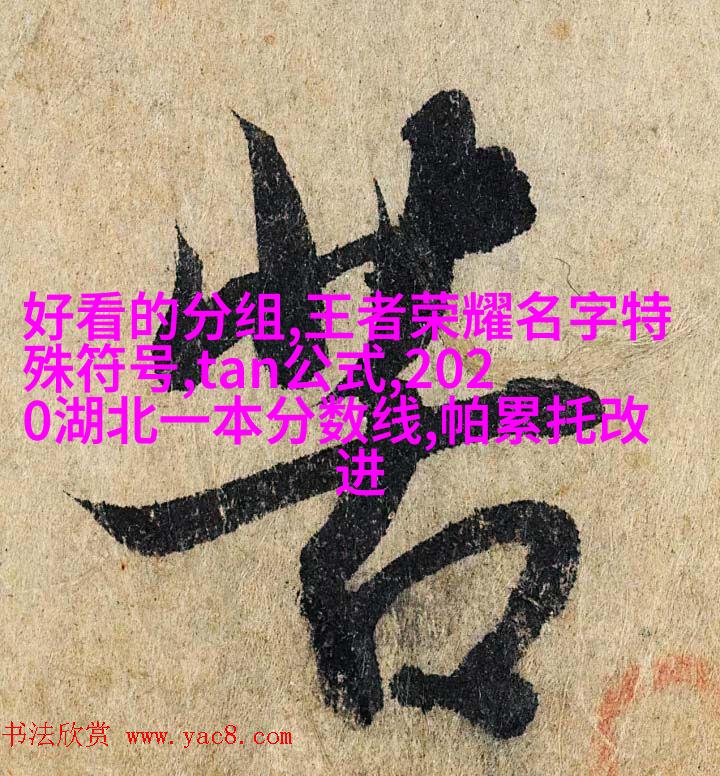 好看的分组,王者荣耀名字特
殊符号,tan公式,202
0湖北一本分数线,帕累托改
进
书法欣赏 www.yac8.com